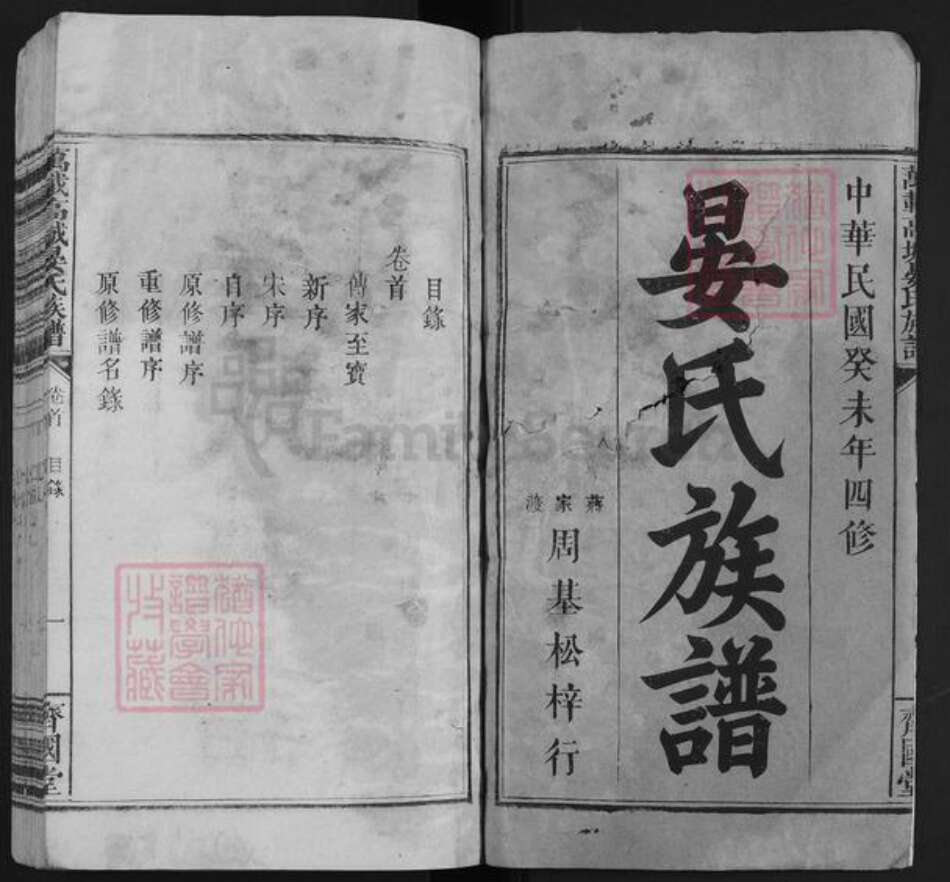 中華民國癸未年四修
晏氏族譜
蔣家渡
周基松梓行
齊國堂
目錄
卷首
傳家至寶
新序
宋序
自序
原修譜序
重修譜序
原修譜名錄
萬載高城晏氏族譜
卷首 目錄
一
齊國堂
FamilySearch